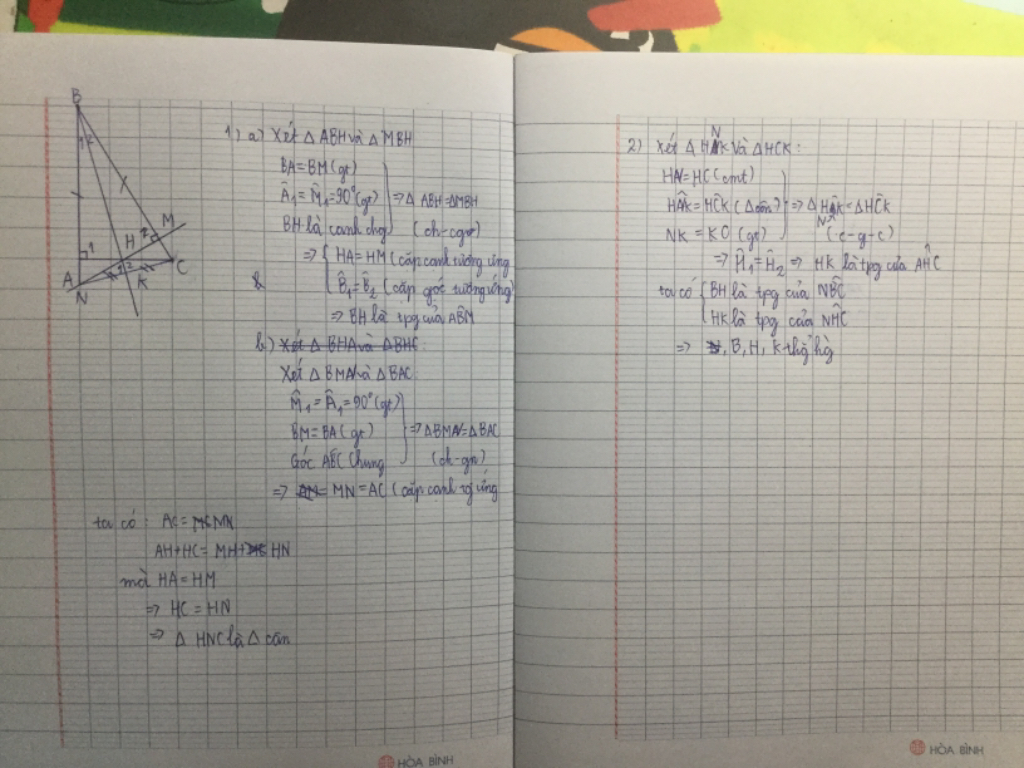 B
M
H
A
N
K
C
1) a) Xét Δ ABH và Δ MBH
BA = BM (gt)
Â1 = M̂1 = 90° (gt) ⇒ Δ ABH = ΔMBH
BH là cạnh chg (ch-cgv)
⇒ { HA = HM (cặp cạnh tương ứng
B̂1 = B̂2 (cặp góc tương ứng)
⇒ BH là tpg của AB̂M
b) Xét Δ BHA và ΔBHC
Xét Δ BMN và Δ BAC
M̂1 = Â1 = 90° (gt)
BM = BA (gt) ⇒ ΔBMN = ΔBAC
Góc AB̂C chung (ch-gn)
⇒ MN = AC (cặp cạnh tg ứng
ta có : AC = MN
AH + HC = MH + HN
mà HA = HM
⇒ HC = HN
⇒ Δ HNC là Δ cân
2) Xét Δ HNK và ΔHCK :
HN = HC (cmt)
HN̂K = HĈK (Δ cân) ⇒ Δ HNK = ΔHCK
NK = KC (gt) (c-g-c)
⇒ Ĥ1 = Ĥ2 ⇒ HK là tpg của AĤC
ta có { BH là tpg của NB̂C
HK là tpg của NĤC
⇒ B, H, K thg hg
HÒA BÌNH
HÒA BÌNH